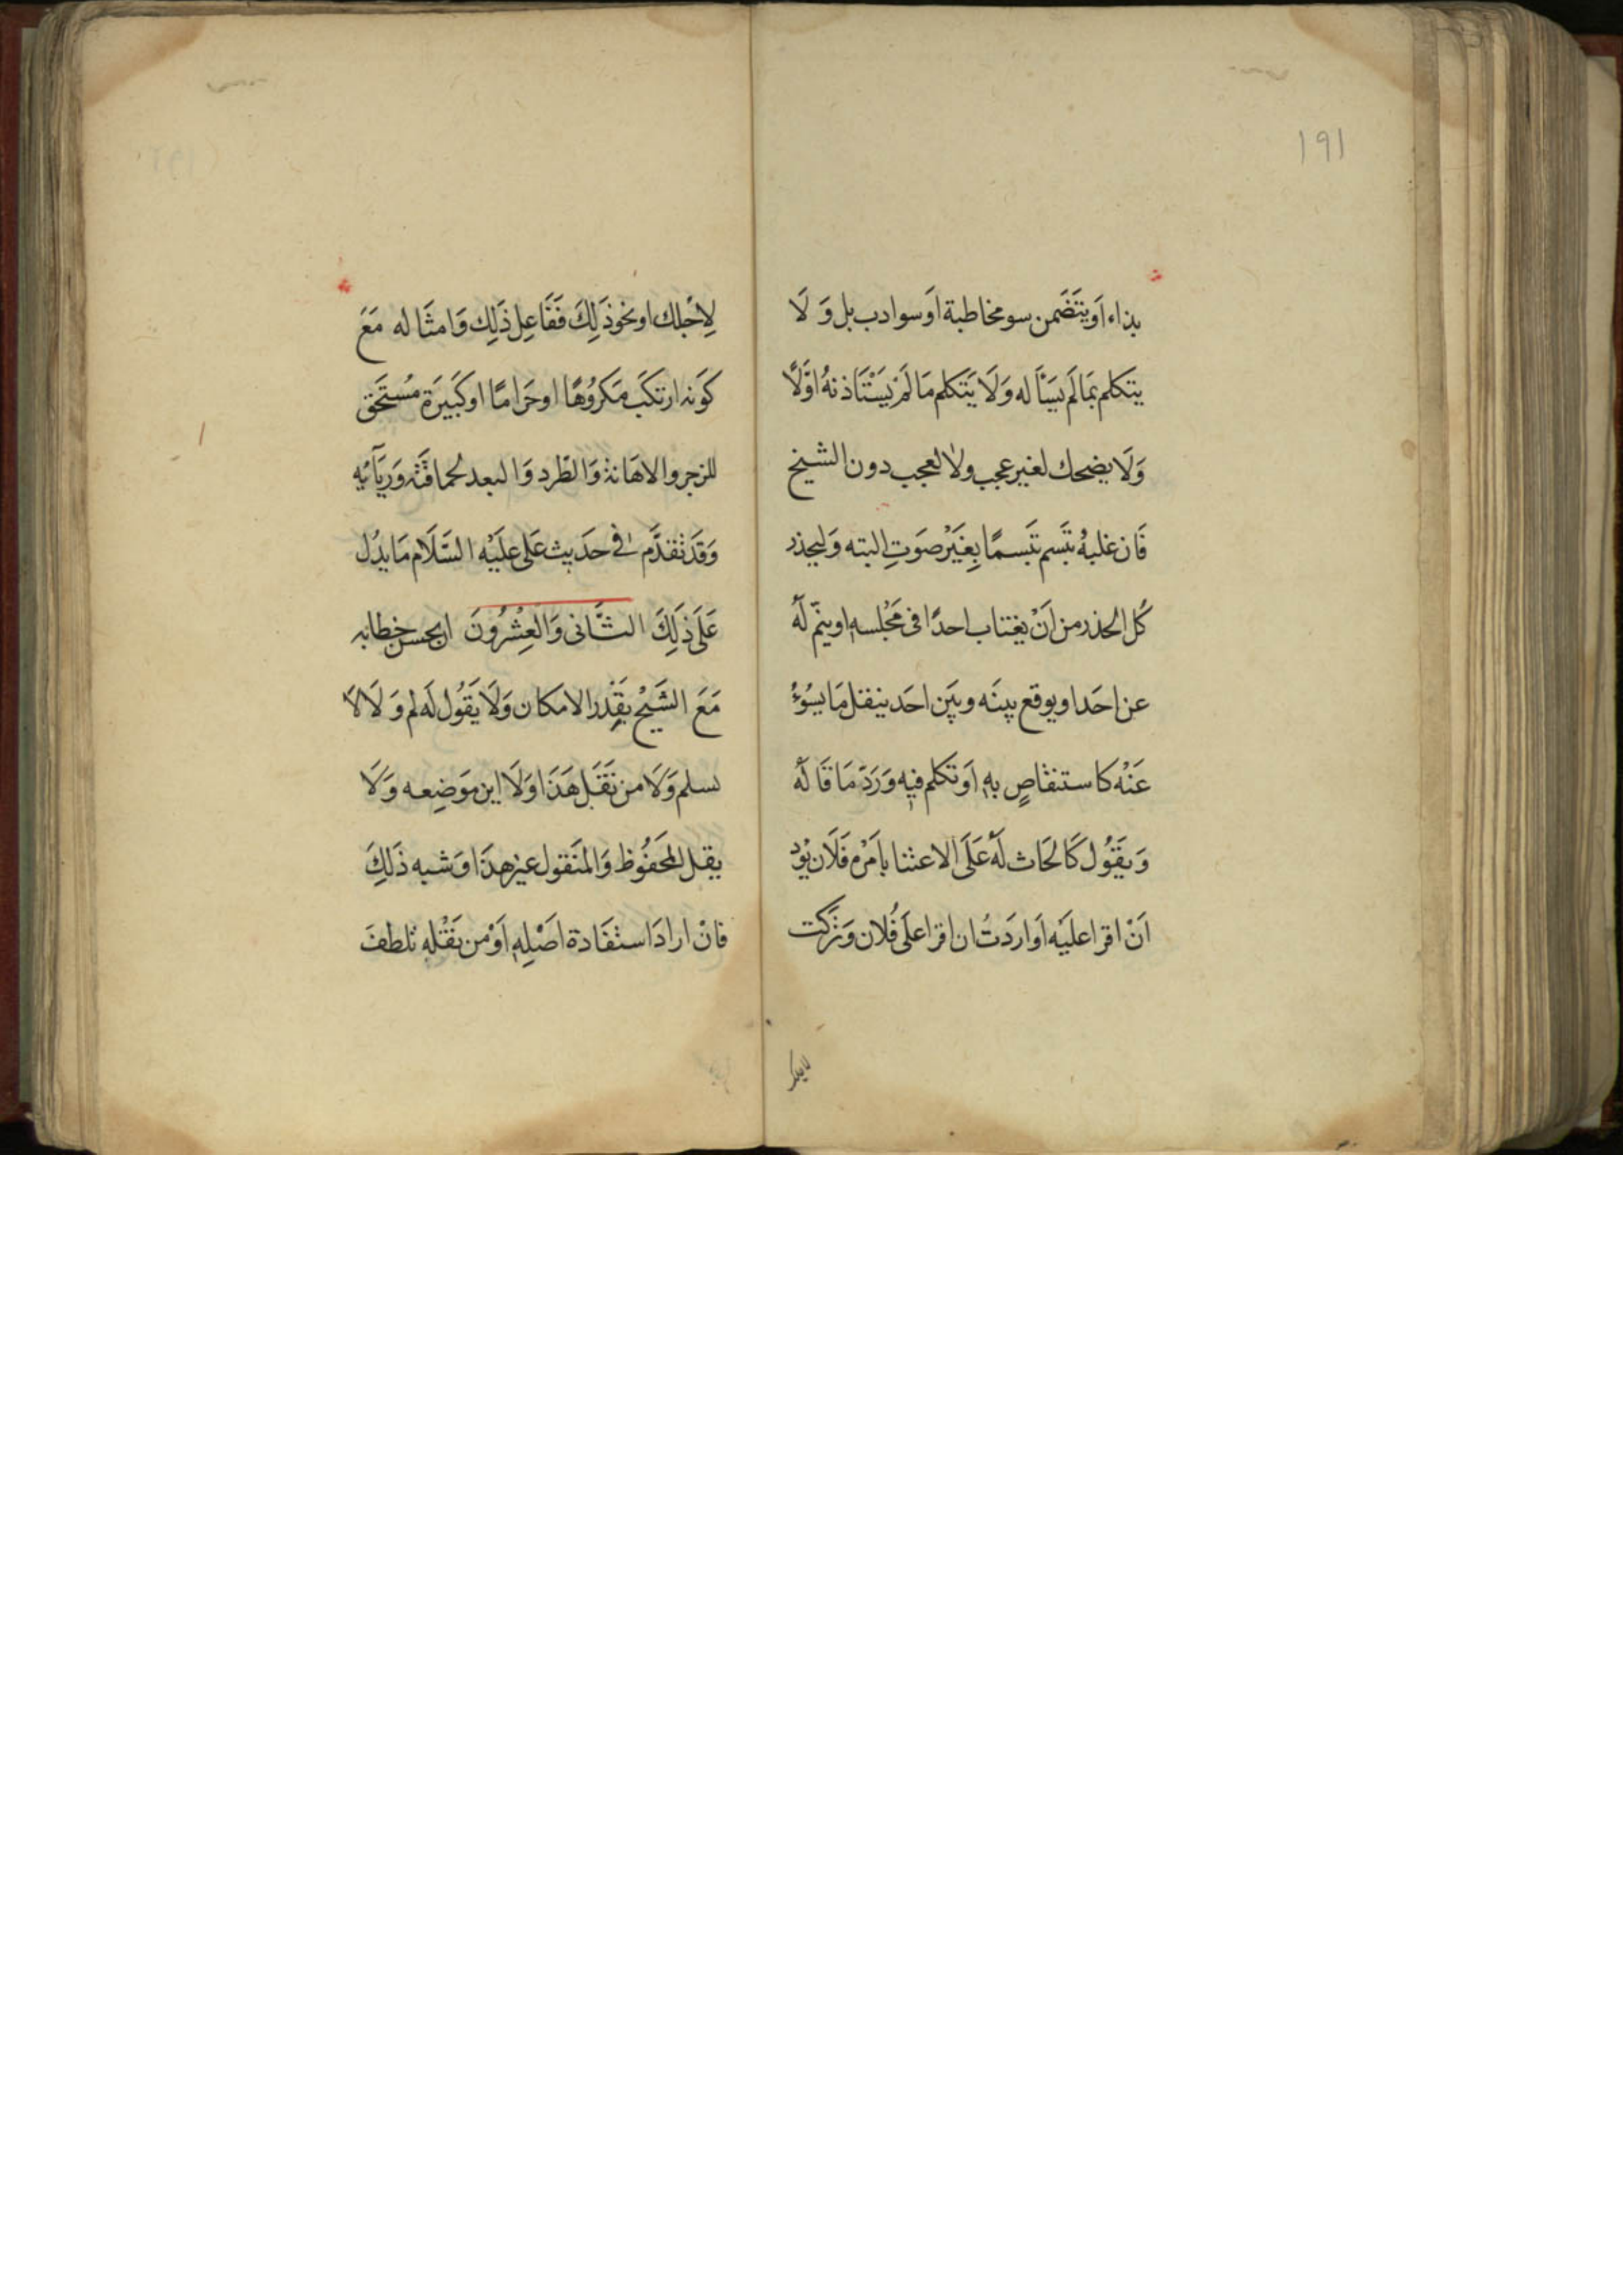 ١٩١
بذاء اَو يتَضَمن سو مخاطبة اَو سوادب بل وَ لَا
يتكلم بمَا لَم يسَأَله وَلَا يَتكلم مَا لَمْ يَسْتَاذنهُ اوّلًا
وَلَا يضحك لغير عجب ولا لعجب دون الشيخ
فَان غلبهُ تبَسم تبَسمًا بِغَيْر صَوَتٍ البته وَليحذر
كُل الحذر من اَنْ يغتاب احدًا فى مَجْلسه او ينمّ لَهُ
عن احَد او يوقع بينَه وبيَن احَد ينقل مَا يسُوءُ
عَنْه كاستنقاصٍ بهِ اَو تكلم فيهِ وَرَدّ مَا قَالهُ
وَ يقَوُل كَالحَاث لَهُ عَلَى الاعتنا باَمْرهِ فَلَان يوَد
اَنْ اقرا عليَه اَو اردَتُ ان اقرا عَلَى فُلان وَتَركت
لِاَجْلك او نحو ذَلِكَ فَفَاعِل ذَلِكَ وَامثَاله مَعَ
كوَنه ارتكَب مَكرُوهًا او حَرَامًا او كبَيَرة مُستَحَق
للزجر والاهَانة وَالطَرد وَالبعد لحماقَته وَرِيَآئِه
وَقَد تقدَّم فى حَديث عَلى علَيْه السَّلَام مَا يدُل
عَلَى ذَلِكَ الثَّانى وَالعِشْرُونَ ان يحسن خطابه
مَعَ الشَّيْخ بقَدر الامكان وَلَا يقَوُل لَه لم وَ لَا لَا
نسلم وَلَا من نقَل هَذَا وَلَا اين مَوَضِعه وَلَا
يقل المحَفُوظ وَالمنَقول غير هذَا وَ شبه ذَلِكَ
فانْ ارادَ استفَادة اصَلهِ اَوْ من نقَلهِ تلطفَ